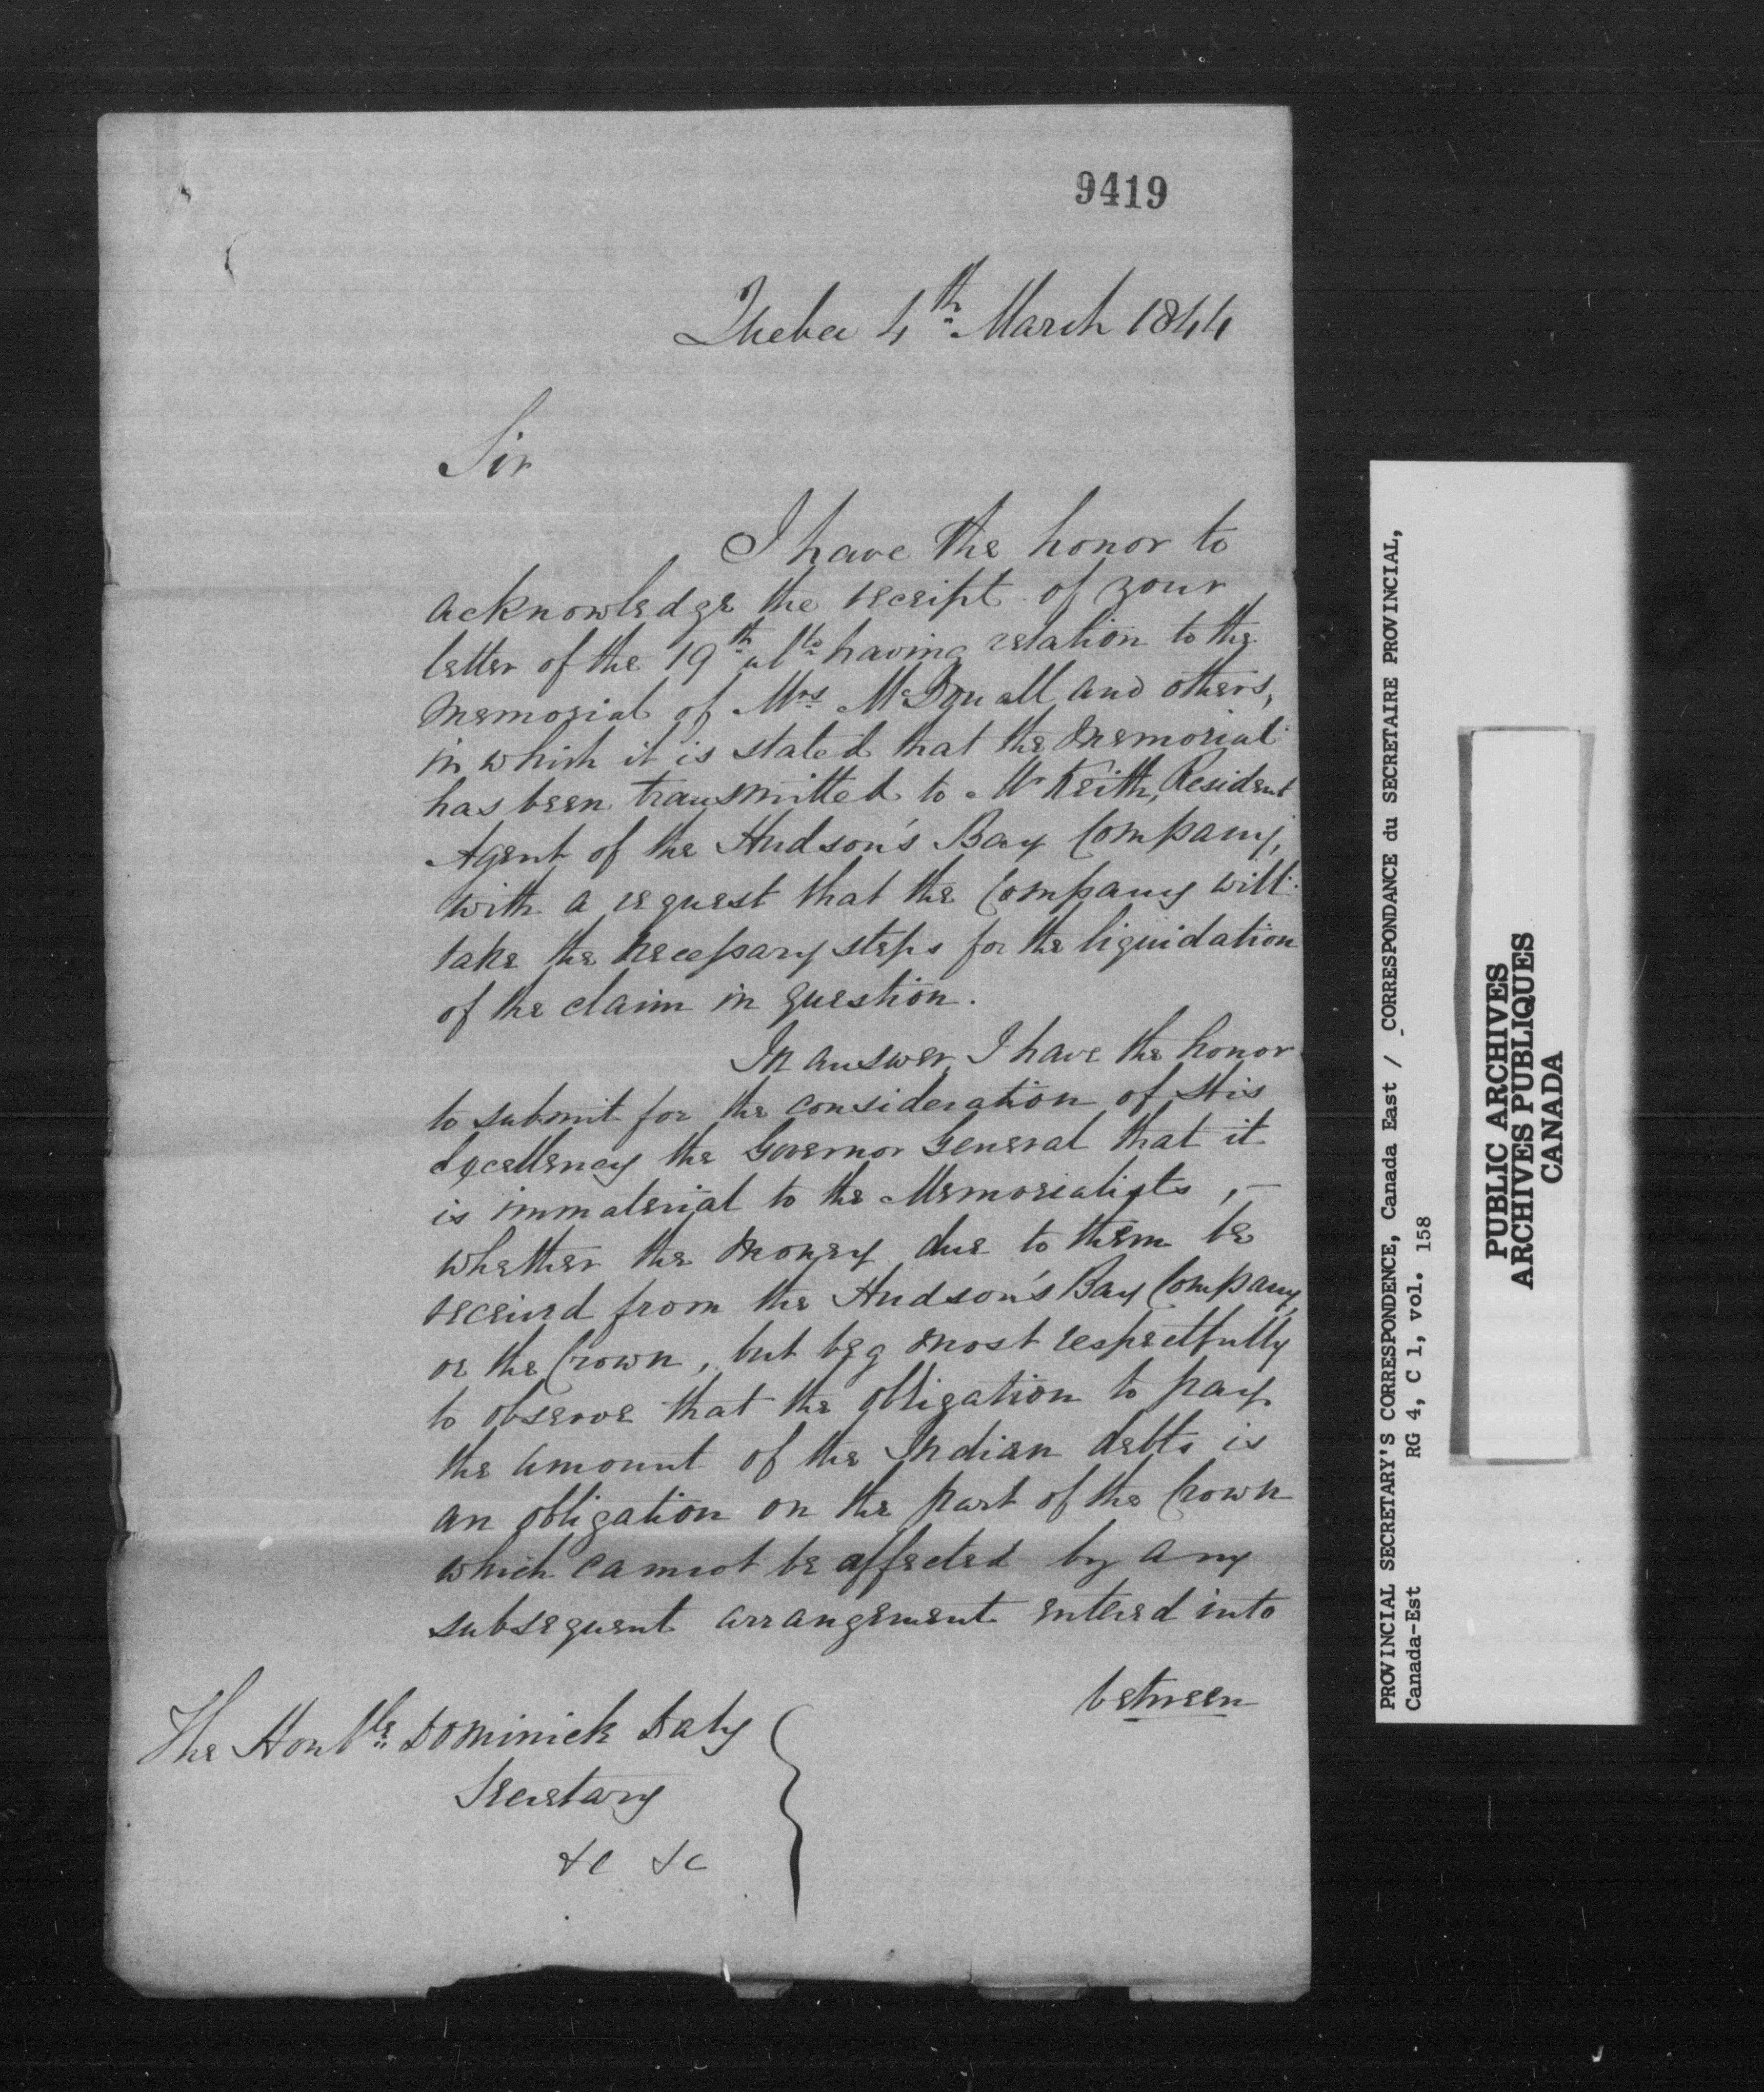 9419
Quebec 4th March 1844
Sir
I have the honor to
acknowledge the receipt of your
letter of the 19th ulto having relation to the
Memorial of Mrs McDouall and others,
in which it is stated that the Memorial
has been transmitted to Mr Keith, Resident
Agent of the Hudson's Bay Company,
with a request that the Company will
take the necessary steps for the liquidation
of the claim in question.
In answer, I have the honor
to submit for the consideration of His
Excellency the Governor General that it
is immaterial to the Memorialists, –
whether the money due to them be
received from the Hudson's Bay Company,
or the Crown, but beg most respectfully
to observe that the obligation to pay
the amount of the Indian debts is
an obligation on the part of the Crown
which cannot be affected by any
subsequent arrangement entered into
between
The Honble Dominick Daly
Secretary
&c &c
PROVINCIAL SECRETARY'S CORRESPONDENCE, Canada East / CORRESPONDANCE du SECRETAIRE PROVINCIAL,
Canada-Est RG 4, C 1, vol. 158
PUBLIC ARCHIVES
ARCHIVES PUBLIQUES
CANADA